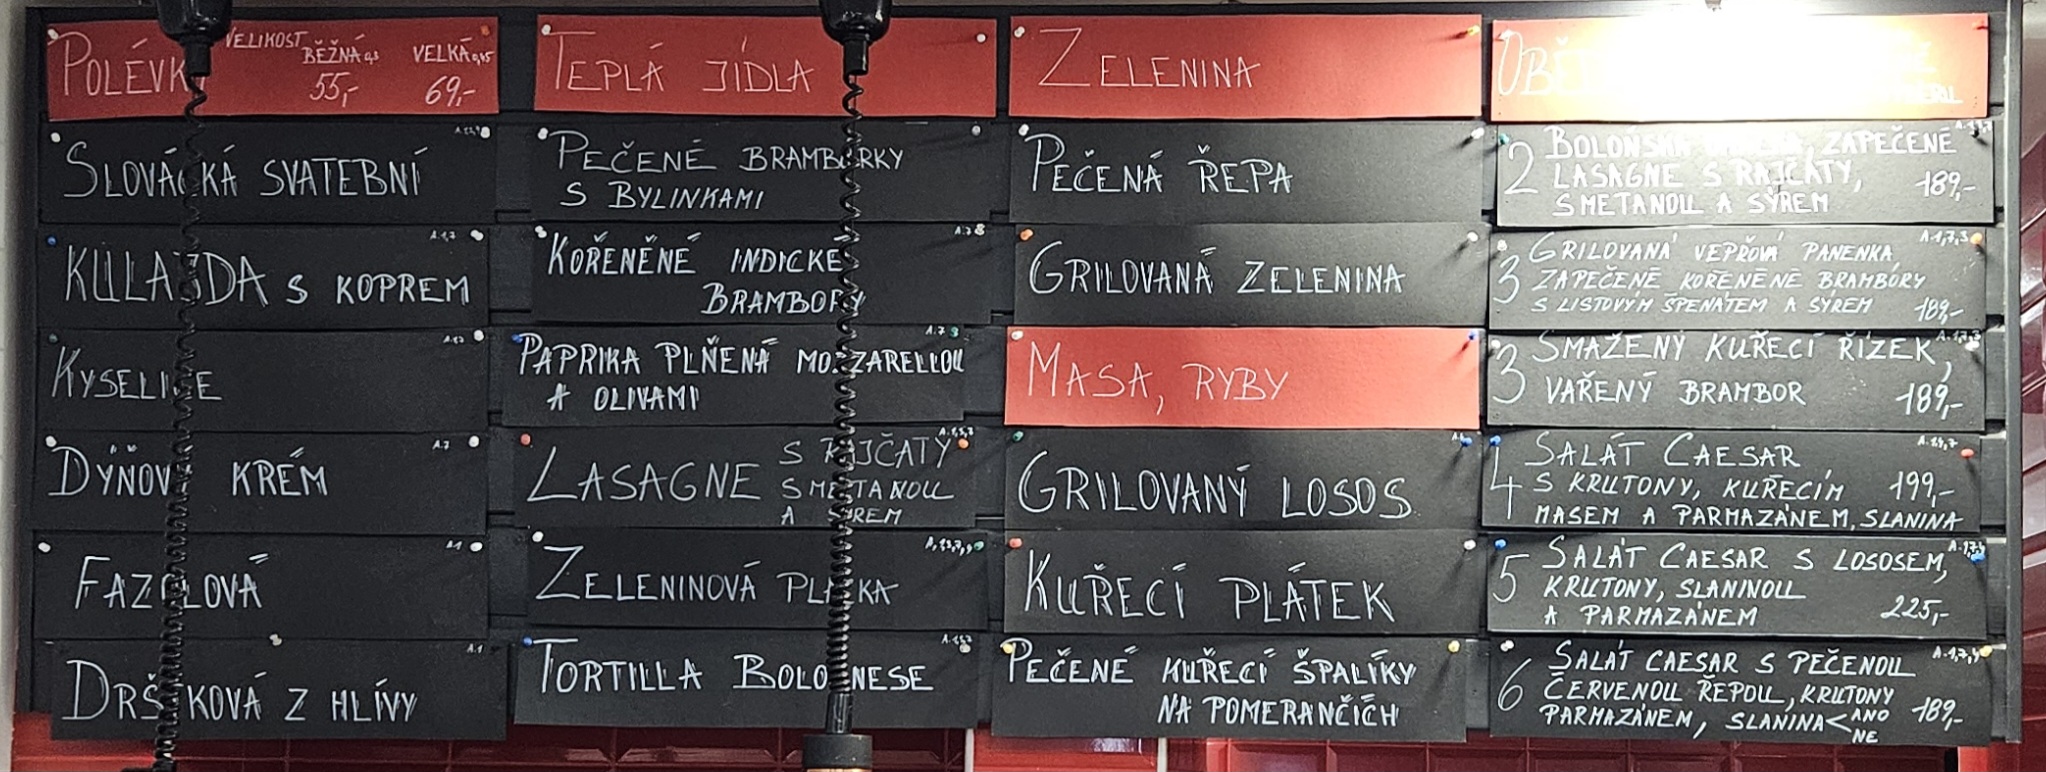 POLÉVK
VELIKOST
BĚŽNÁ 0,3 VELKÁ 0,45
55,- 69,-
SLOVÁCKÁ SVATEBNÍ
KULAJDA S KOPREM
A.1,7
KYSELICE
DÝŇOV KRÉM
A.7
FAZOLOVÁ
A.1
DRŠŤKOVÁ Z HLÍVY
A.1
TEPLÁ JÍDLA
PEČENÉ BRAMBŮRKY
S BYLINKAMI
KOŘENĚNÉ INDICKÉ
BRAMBORY
PAPRIKA PLŇENÁ MOZZARELLOU
A OLIVAMI
A.7
LASAGNE S RAJČATY
SMETANOU
A SÝREM
ZELENINOVÁ PLACKA
TORTILLA BOLOGNESE
ZELENINA
PEČENÁ ŘEPA
GRILOVANÁ ZELENINA
MASA, RYBY
GRILOVANÝ LOSOS
KUŘECÍ PLÁTEK
PEČENÉ KUŘECÍ ŠPALÍKY
NA POMERANČÍCH
OBĚ
2 BOLOŇSKÁ ZAPEČENÉ
LASAGNE S RAJČATY, 189,-
SMETANOU A SÝREM
A.1,7,3
3 GRILOVANÁ VEPŘOVÁ PANENKA
ZAPEČENÉ KOŘENĚNÉ BRAMBŮRY
S LISTOVÝM ŠPENÁTEM A SÝREM 189,-
3 SMAŽENÝ KUŘECÍ ŘÍZEK,
VAŘENÝ BRAMBOR 189,-
4 SALÁT CAESAR
S KRUTONY, KUŘECÍM 199,-
MASEM A PARMAZÁNEM, SLANINA
5 SALÁT CAESAR S LOSOSEM,
KRUTONY, SLANINOU
A PARMAZÁNEM 225,-
6 SALÁT CAESAR S PEČENOU
ČERVENOU ŘEPOU, KRUTONY
PARMAZÁNEM, SLANINA < ANO 189,-
NE